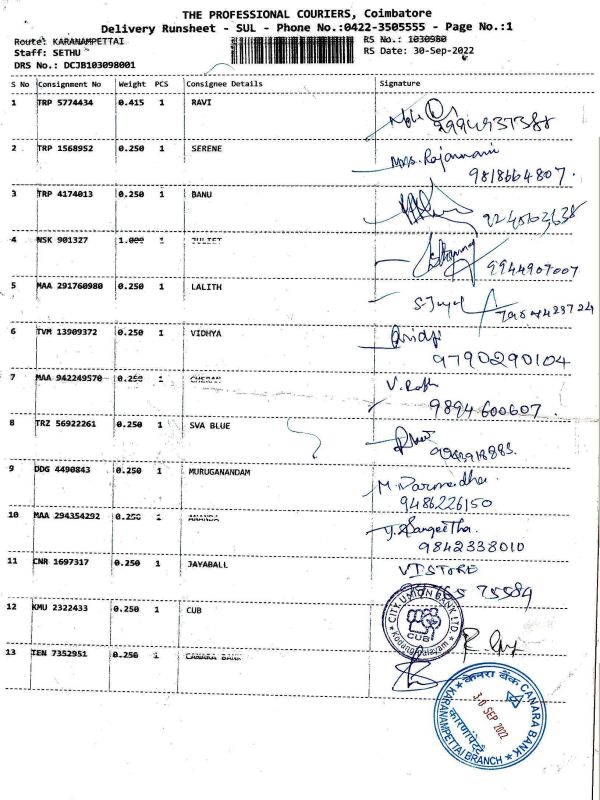 THE PROFESSIONAL COURIERS, Coimbatore
Delivery Runsheet - SUL - Phone No.:0422-3505555 - Page No.:1
Route: KARANAMPETTAI RS No.: 1030980
Staff: SETHU RS Date: 30-Sep-2022
DRS No.: DCJB103098001
S No Consignment No Weight PCS Consignee Details Signature
1 TRP 5774434 0.415 1 RAVI
2 TRP 1568952 0.250 1 SERENE Rajamani
9818664807.
3 TRP 4174013 0.250 1 BANU
4 NSK 901327 1.000 1 JULIET
9944907007
5 MAA 291760980 0.250 1 LALITH
6 TVM 13909372 0.250 1 VIDHYA
9790290104
7 MAA 942249570 0.250 1 CHERAN V.
9894600607.
8 TRZ 56922261 0.250 1 SVA BLUE
9 DDG 4490843 0.250 1 MURUGANANDAM M.
9486226150
10 MAA 294354292 0.250 1 ANANDA Y. Sangeetha.
9842338010
11 CNR 1697317 0.250 1 JAYABALL
12 KMU 2322433 0.250 1 CUB
CITY UNION BANK LTD
CUB
13 TEN 7352951 0.250 1 CANARA BANK
केनरा बैंक CANARA BANK
30 SEP 2022
KARANAMPETTAI BRANCH